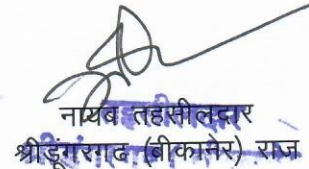 नायब तहसीलदार
श्रीडूंगरगढ (बीकानेर) राज